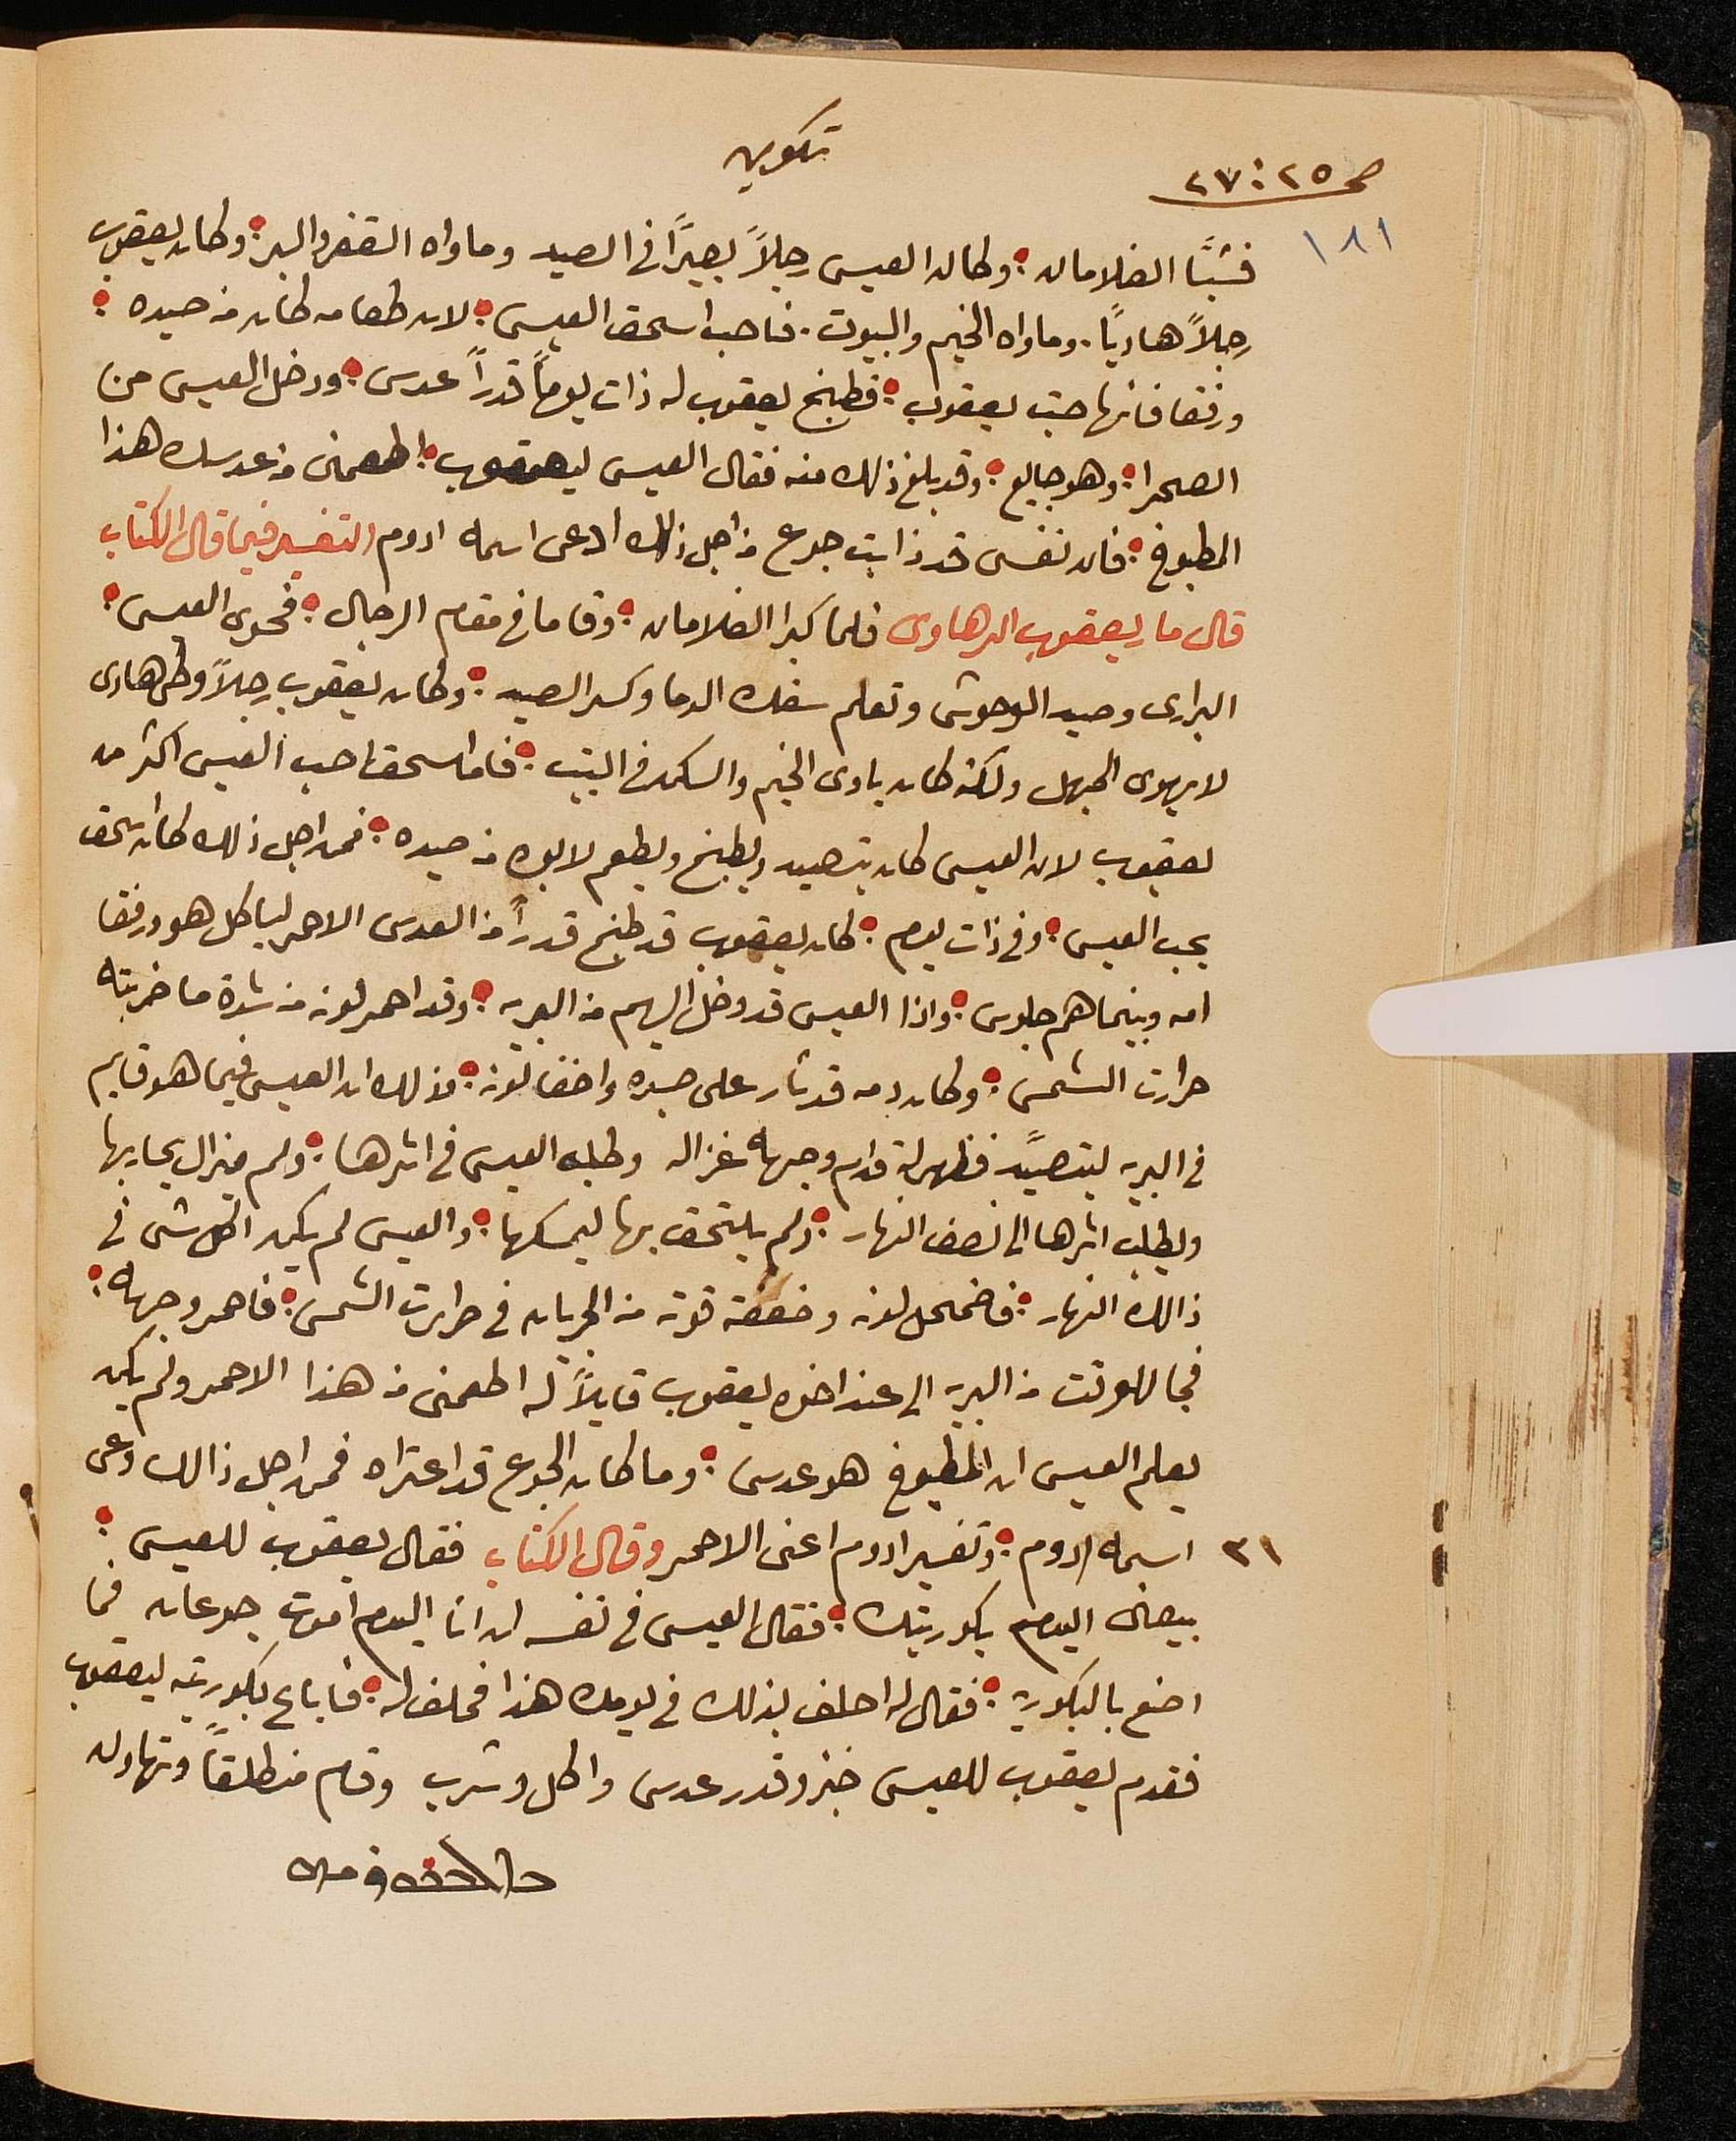 تكوين
صح ٢٥ : ٢٧
١٨١
فشبَّا الغلامان : وكان العيس رجلاً بصيرًا فى الصيد وماواه القفر والبر : وكان يعقوب
رجلاً هاديًا . وماواه الخيم والبيوت . فاحب اسحق العيس : لان طعامه كان من صيده :
ورفقا فانها حبت يعقوب : فطبخ يعقوب له ذات يومًا قدراً عدس : ودخل العيس من
الصحرا : وهو جايع : وقد بلغ ذلك منه فقال العيس ليعقوب : اطعمنى من عدسك هذا
المطبوخ : فان نفسى قد ذابت جوع من اجل ذلك ادعى اسمه ادوم التفسير فيما قال الكتاب
قال مار يعقوب الرهاوى فلما كبرا الغلامان : وقاما فى مقام الرجال : فحوى العيس :
البرارى وصيد الوحوش وتعلم سفك الدما وكسر الصيد : وكان يعقوب رجلاً وطى هادى
لا يهوى الجهل ولكنه كان ياوى الخيم والسكن فى البيت : فاما اسحق احب العيس اكثر من
يعقوب لان العيس كان يتصيد ويطبخ ويطعم لابوه من صيده : فمن اجل ذلك كان اسحق
يحب العيس : وفى ذات يوم : كان يعقوب قد طبخ قدراً من العدس الاحمر لياكل هو ورفقا
امه وبينما هم جلوس : واذا العيس قد دخل اليهم من البريه : وقد احمر لونه من شدة ما ضربته
حرارت الشمس : وكان دمه قد ثار على جسده واخفا لونه : وذلك ان العيس فيما هو قايم
فى البريه ليتصيَّد فظهر له قدام وجهه غزاله وطلب العيس فى اثرها : ولم يزال يجاريها
ويطلب اثرها الى نصف النهار : ولم يلتحق بها ليمسكها : والعيس لم يكن اكل شى فى
ذالك النهار : فاضمحل لونه وضعفة قوته من الجريان فى حرارت الشمس : فاحمر وجهه :
فجا للوقت من البريه الى عند اخوه يعقوب قايلاً له اطعمنى من هذا الاحمر ولم يكن
يعلم العيس ان المطبوخ هو عدس : وما كان الجوع قد اعتراه فمن اجل ذالك دعى
٣١ اسمه ادوم : وتفسير ادوم اعنى الاحمر وقال الكتاب فقال يعقوب للعيس :
بيعنى اليوم بكوريتك : فقال العيس فى نفسه ان انا اليوم اموت جوعان فما
اصنع بالبكوريه : فقال له احلف بذلك فى يومك هذا فحلف له : فاباع بكوريته ليعقوب
فقدم يعقوب للعيس خبز وقدر عدس واكل وشرب وقام منطلقاً وتهاون